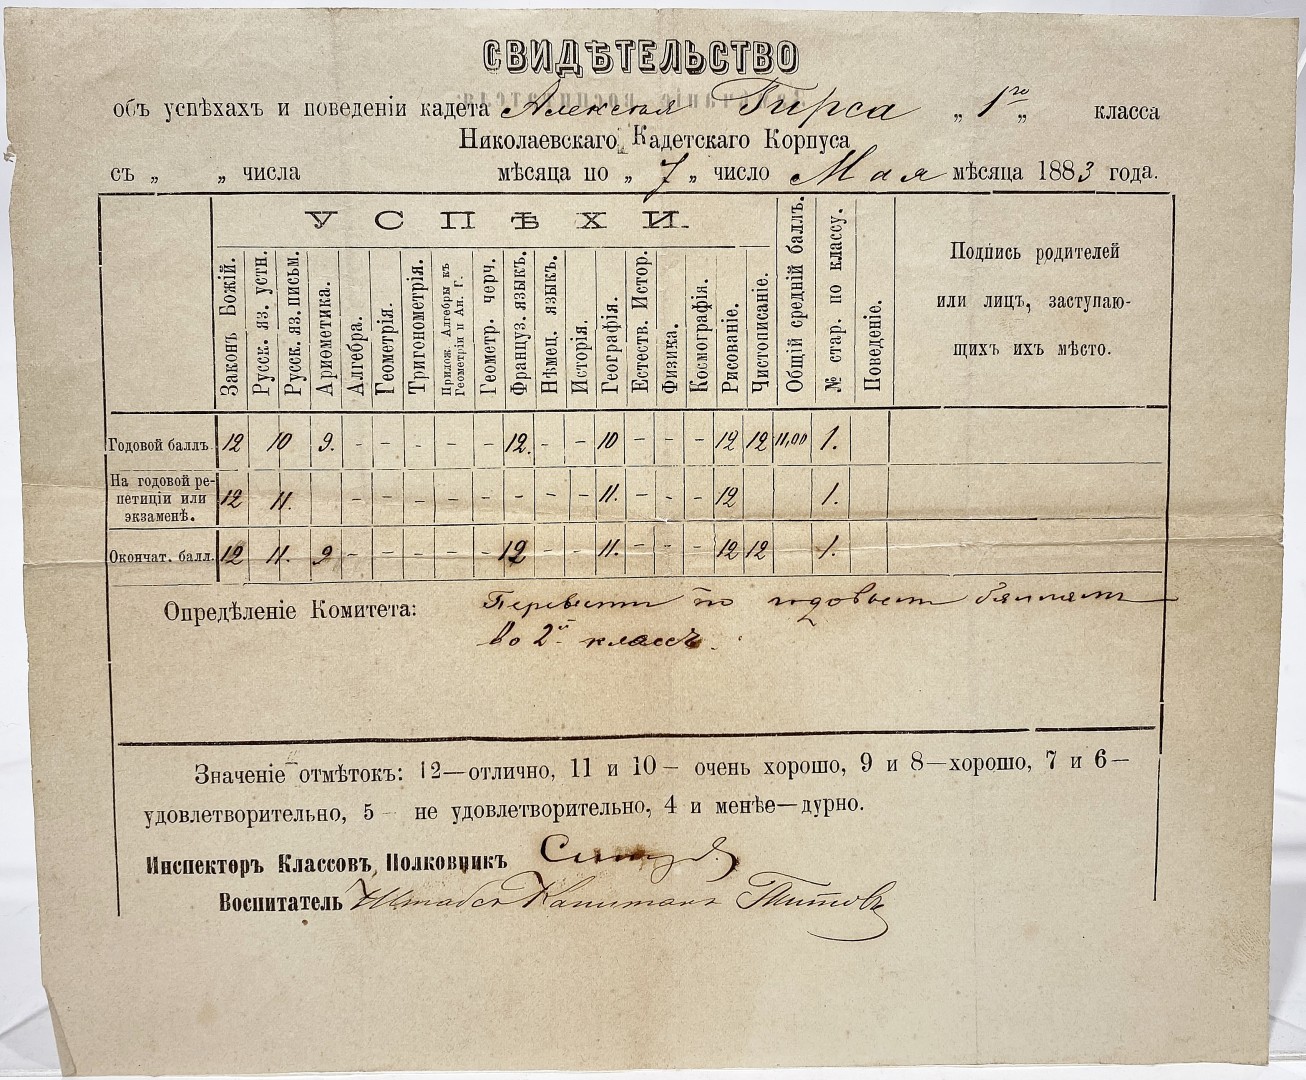 СВИДѢТЕЛЬСТВО
объ успѣхахъ и поведеніи кадета Алексѣя Гирса „ 1го „ класса
Николаевскаго Кадетскаго Корпуса
съ „ „ числа мѣсяца по „ 7 „ число Мая мѣсяца 1883 года.
УСПѢХИ.
Законъ Божій.
Русск. яз. устн.
Русск. яз. письм.
Ариѳметика.
Алгебра.
Геометрія.
Тригонометрія.
Прилож. Алгебры къ
Геометріи и Ан. Г.
Геометр. черч.
Француз. языкъ.
Нѣмец. языкъ.
Исторія.
Географія.
Естеств. Истор.
Физика.
Космографія.
Рисованіе.
Чистописаніе.
Общій средній баллъ.
№ стар. по классу.
Поведеніе.
Подпись родителей
или лицъ, заступаю-
щихъ ихъ мѣсто.
Годовой баллъ 12 10 9. - - - - - 12. - - 10 - - - 12 12 11,00 1.
На годовой ре-
петиціи или
экзаменѣ. 12 11. - - - - - - - - 11. - - - 12 1.
Окончат. балл. 12 11. 9 - - - - - 12 - - 11. - - - 12 12 1.
Опредѣленіе Комитета: Перевести по годовымъ балламъ
во 2й классъ.
Значеніе отмѣтокъ: 12—отлично, 11 и 10— очень хорошо, 9 и 8—хорошо, 7 и 6—
удовлетворительно, 5— не удовлетворительно, 4 и менѣе—дурно.
Инспекторъ Классовъ, Полковникъ
Воспитатель Штабсъ Капитанъ Титовъ